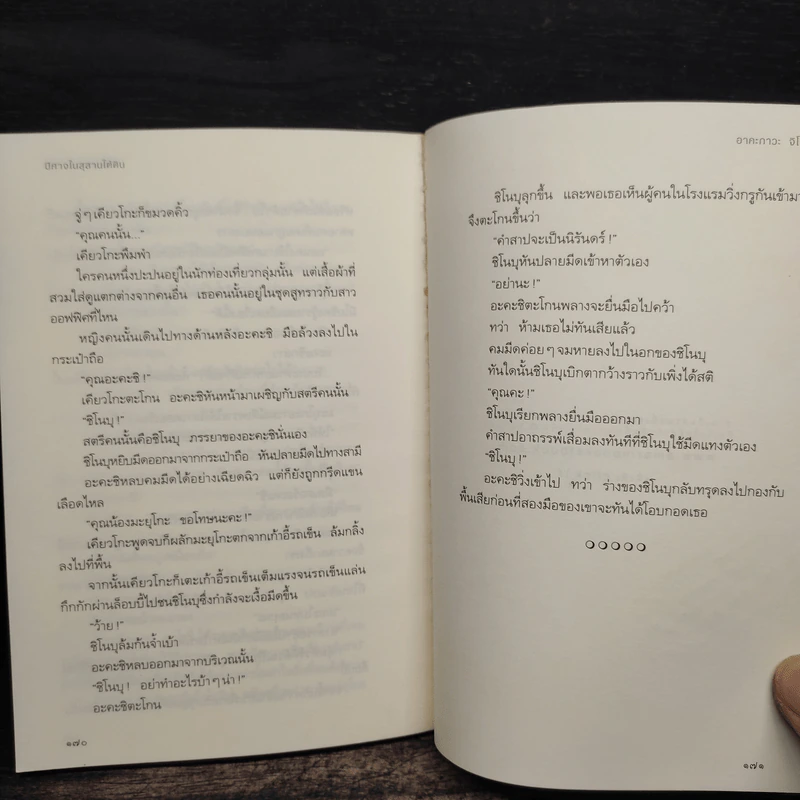 ปีศาจในสุสานใต้ดิน
จู่ๆ เคียวโกะก็ขมวดคิ้ว
“คุณคนนั้น...”
เคียวโกะพึมพำ
ใครคนหนึ่งปะปนอยู่ในนักท่องเที่ยวกลุ่มนั้น แต่เสื้อผ้าที่
สวมใส่ดูแตกต่างจากคนอื่น เธอคนนั้นอยู่ในชุดสูทราวกับสาว
ออฟฟิศที่ไหน
หญิงคนนั้นเดินไปทางด้านหลังอะคะชิ มือล้วงลงไปใน
กระเป๋าถือ
“คุณอะคะชิ !”
เคียวโกะตะโกน อะคะชิหันหน้ามาเผชิญกับสตรีคนนั้น
“ชิโนบุ !”
สตรีคนนั้นคือชิโนบุ ภรรยาของอะคะชินั่นเอง
ชิโนบุหยิบมีดออกมาจากกระเป๋าถือ หันปลายมีดไปทางสามี
อะคะชิหลบคมมีดได้อย่างเฉียดฉิว แต่ก็ยังถูกกรีดแขน
เลือดไหล
“คุณน้องมะยุโกะ ขอโทษนะคะ !”
เคียวโกะพูดจบก็ผลักมะยุโกะตกจากเก้าอี้รถเข็น ล้มกลิ้ง
ลงไปที่พื้น
จากนั้นเคียวโกะก็เตะเก้าอี้รถเข็นเต็มแรงจนรถเข็นแล่น
กึกกักผ่านล็อบบี้ไปชนชิโนบุซึ่งกำลังจะเงื้อมีดขึ้น
“ว้าย !”
ชิโนบุล้มก้นจ้ำเบ้า
อะคะชิหลบออกมาจากบริเวณนั้น
“ชิโนบุ ! อย่าทำอะไรบ้าๆ น่า !”
อะคะชิตะโกน
๑๗๐
อาคะกาวะ จิโ
ชิโนบุลุกขึ้น และพอเธอเห็นผู้คนในโรงแรมวิ่งกรูกันเข้ามา
จึงตะโกนขึ้นว่า
“คำสาปจะเป็นนิรันดร์ !”
ชิโนบุหันปลายมีดเข้าหาตัวเอง
“อย่านะ !”
อะคะชิตะโกนพลางจะยื่นมือไปคว้า
ทว่า ห้ามเธอไม่ทันเสียแล้ว
คมมีดค่อยๆ จมหายลงไปในอกของชิโนบุ
ทันใดนั้นชิโนบุเบิกตากว้างราวกับเพิ่งได้สติ
“คุณคะ !”
ชิโนบุเรียกพลางยื่นมือออกมา
คำสาปอาถรรพ์เสื่อมลงทันทีที่ชิโนบุใช้มีดแทงตัวเอง
“ชิโนบุ !”
อะคะชิวิ่งเข้าไป ทว่า ร่างของชิโนบุกลับทรุดลงไปกองกับ
พื้นเสียก่อนที่สองมือของเขาจะทันได้โอบกอดเธอ
๑๗๑